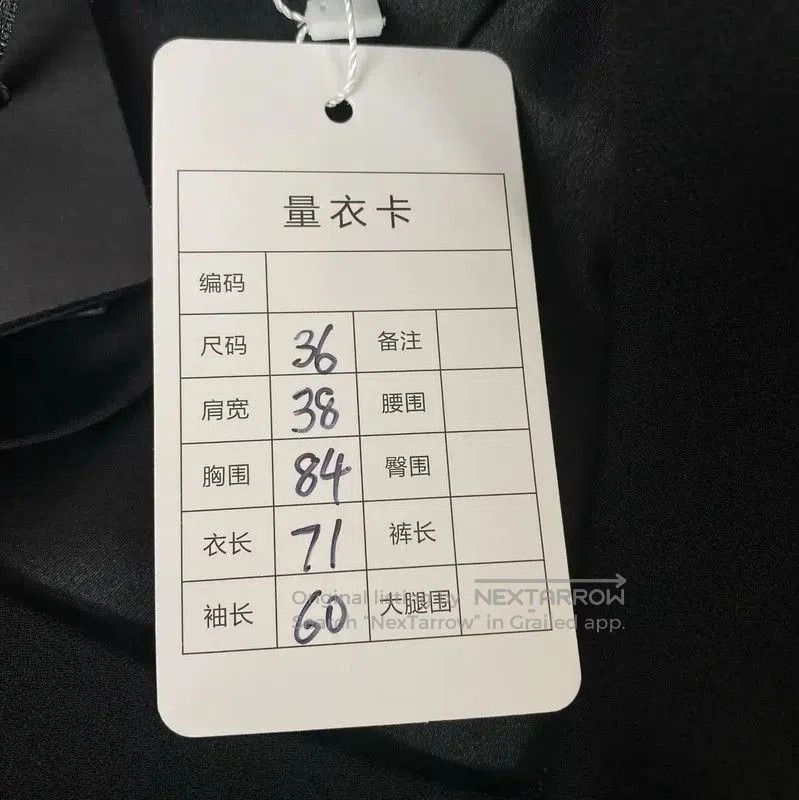 量衣卡
编码
尺码 36 备注
肩宽 38 腰围
胸围 84 臀围
衣长 71 裤长
袖长 60 大腿围
Original listing by NEXTARROW
Search "NexTarrow" in Grailed app.